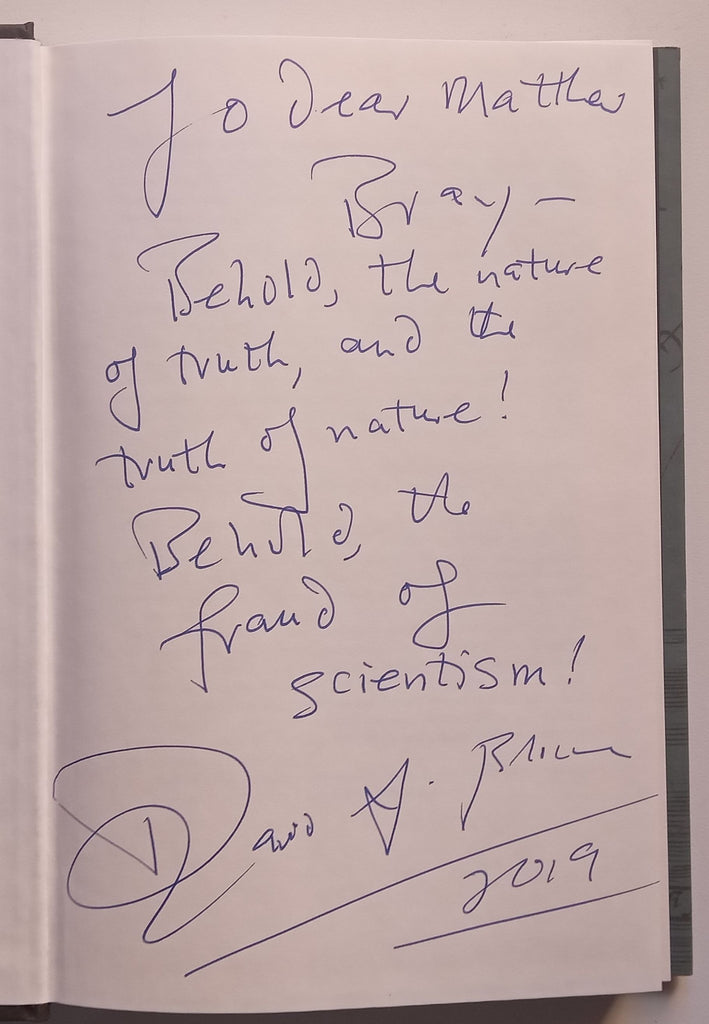 To Dear Matthew
Bray —
Behold, the nature
of truth, and the
truth of nature!
Behold, the
fraud of
scientism!
David A.
2019